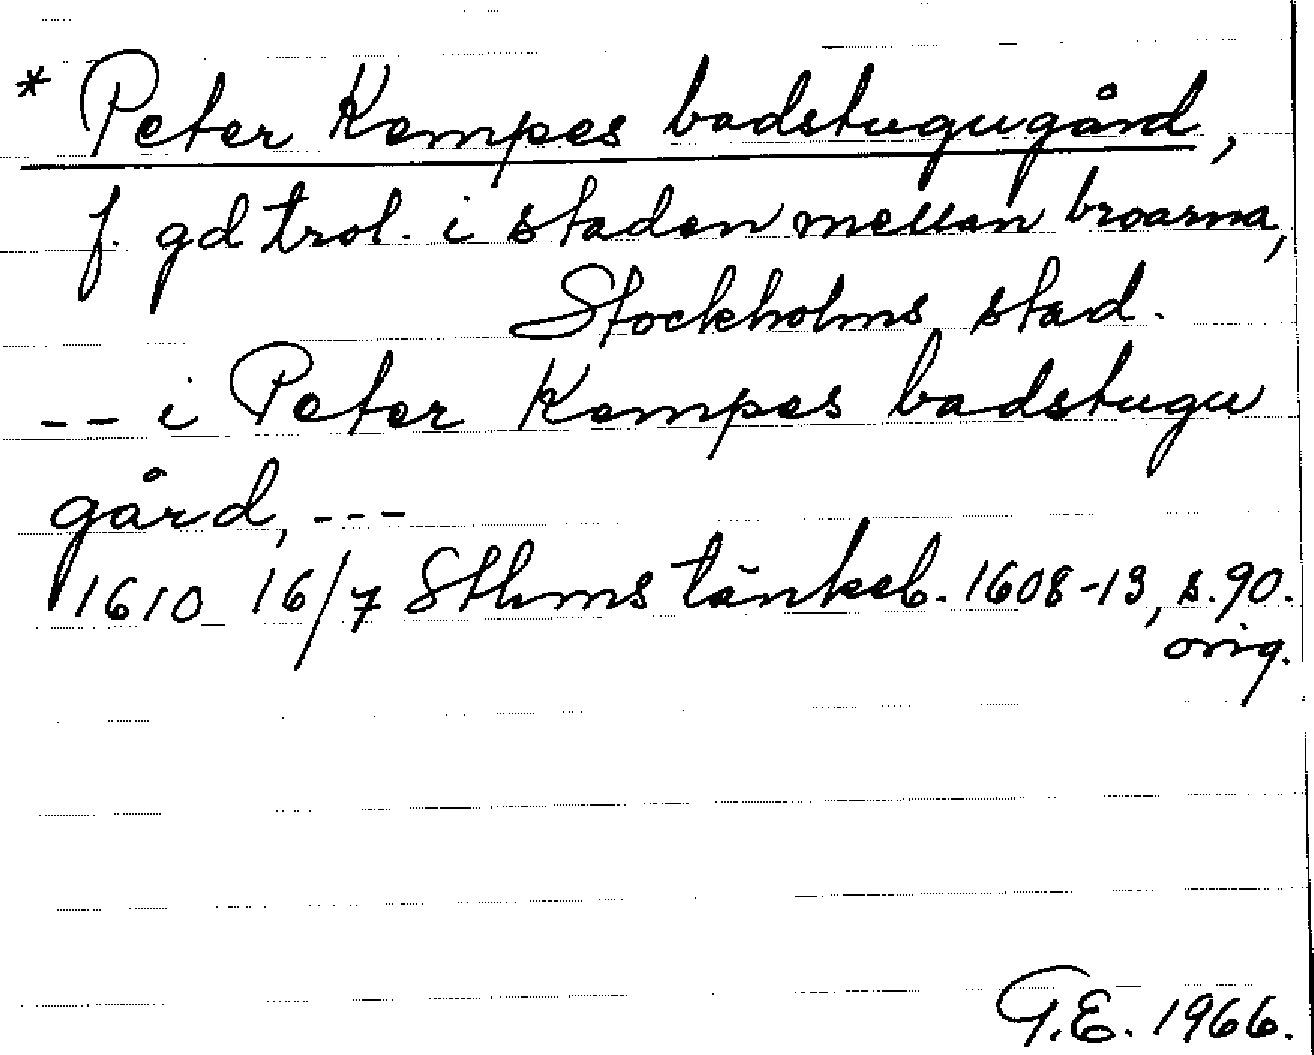 * Peter Kempes badstugugård,
f. gd trol. i staden mellan broarna,
Stockholms stad.
-- i Peter Kempes badstugu
gård, ---
1610 16/7 Sthms tänkeb. 1608-13, s. 90.
orig.
G.E. 1966.